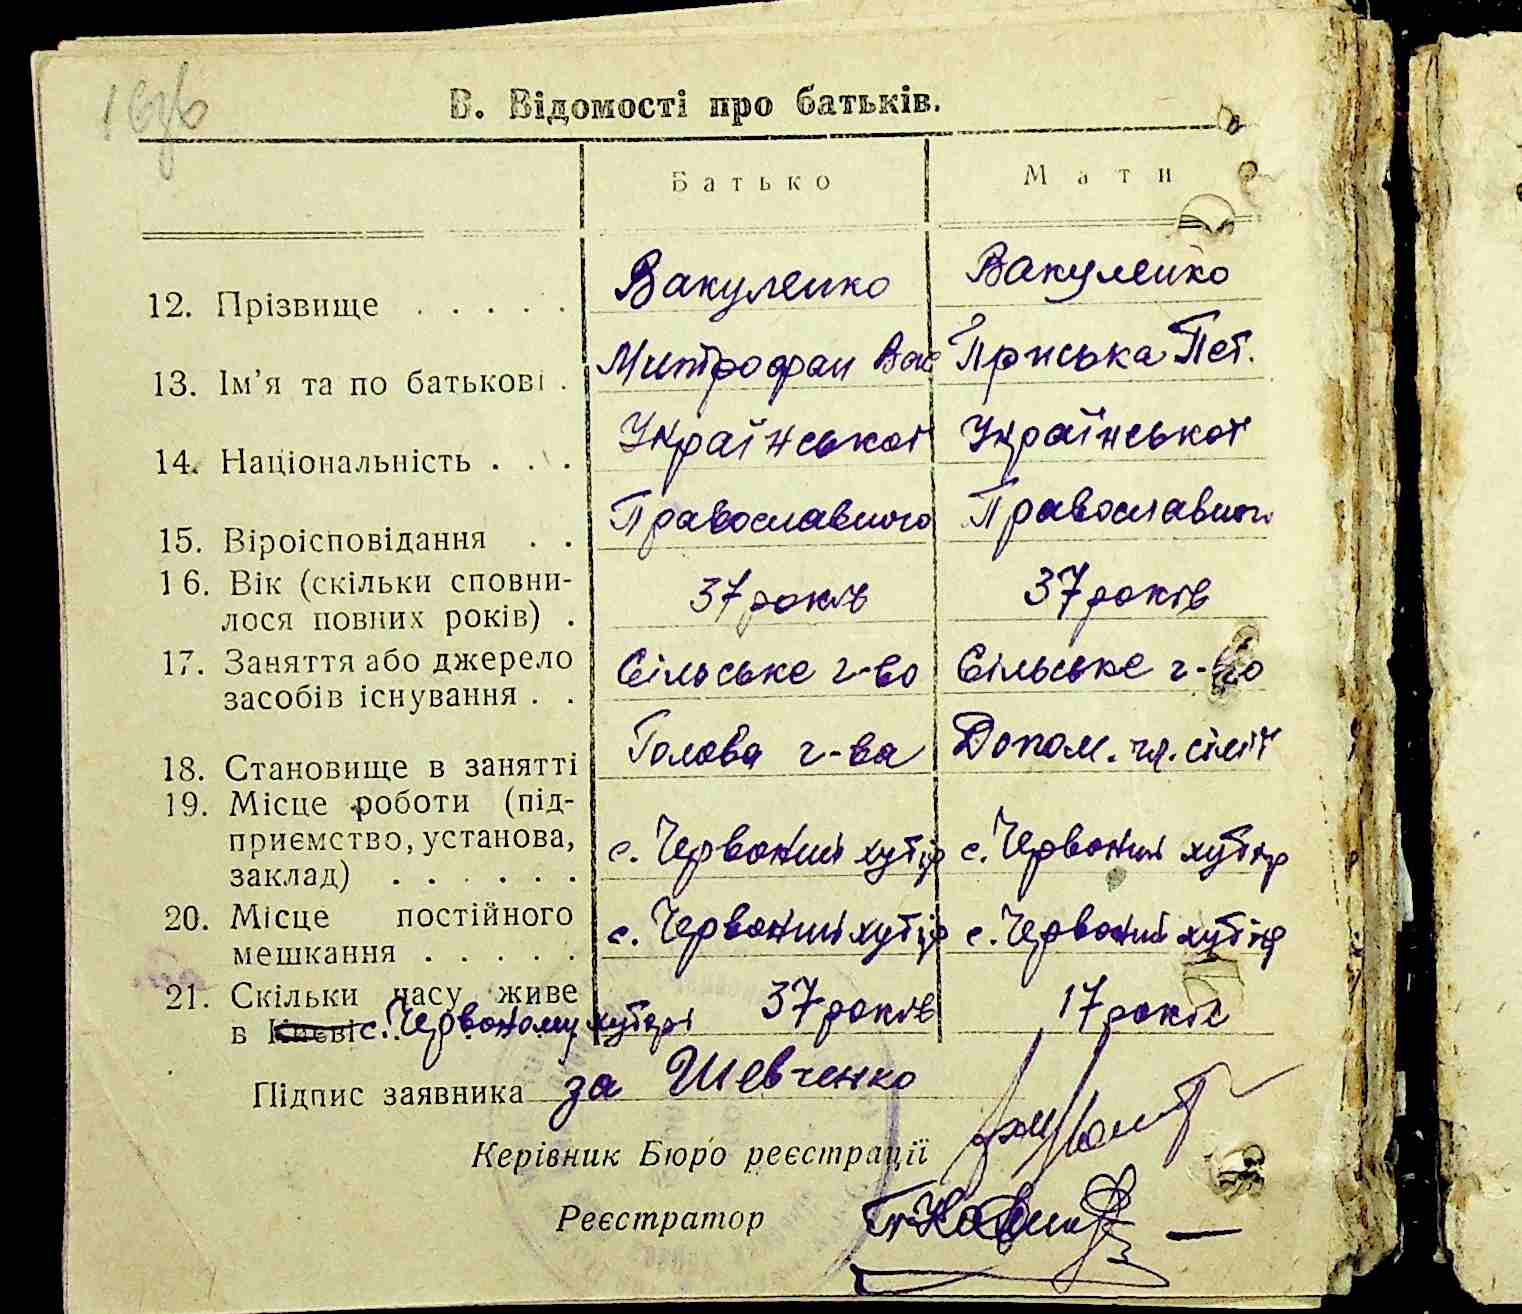 В. Відомості про батьків.
Батько Мати
12. Прізвище . . . . . Вакуленко Вакуленко
13. Ім'я та по батькові . Митрофан Вас Пріська Пет.
14. Національність . . . Української Української
15. Віроісповідання . . Православного Православного
16. Вік (скільки сповни-
лося повних років) . 37 років 37 років
17. Заняття або джерело
засобів існування . . Сільське г-во Сільське г-во
18. Становище в занятті Голова г-ва Допом. чл. сімії
19. Місце роботи (під-
приємство, установа,
заклад) . . . . . . с. Червоний хутір с. Червоний хутір
20. Місце постійного
мешкання . . . . . с. Червоний хутір с. Червоний хутір
21. Скільки часу живе
в Києві с. Червоному хуторі 37 років 17 років
Підпис заявника за Шевченко
Керівник Бюро реєстрації
Реєстратор